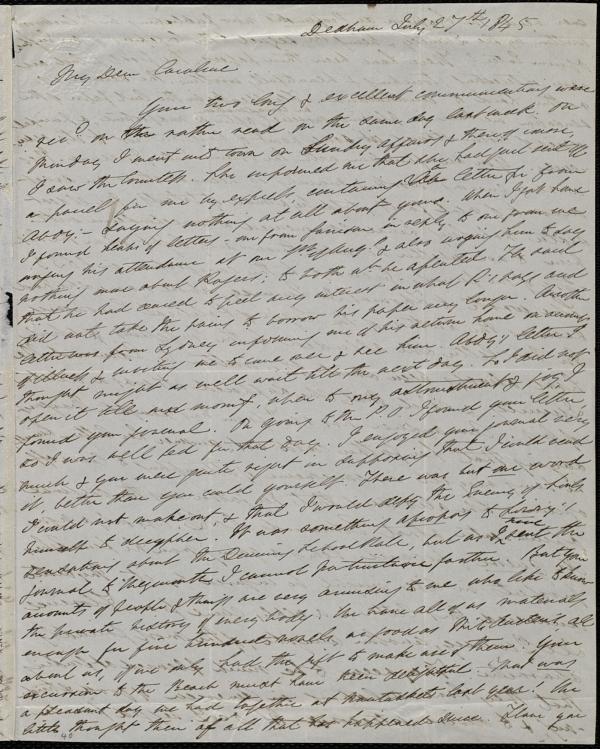 Dedham July 27th 1845.
My Dear Caroline
Your two long & excellent communications were
rec'd or rather read on the same day last week. On
Monday I went into town on Sundry affairs & then of course,
I saw the Countess. She informed me that she had just sent off
a parcel for me by express containing a letter for from
Abdy:- Saying nothing at all about yours. When I got home
I found heaps of letters. one from in reply to one from me
urging his attendance at our 1st Aug. & also urging him to say
nothing more about Rogers; to both wh. he assented. He said
that he had ceased to feel any interest in what R. says and
did not take the pains to borrow his paper any longer. Another
letter was from Sydney informing me of his return home on account
of illness & inviting me to come over & see him. Abdy's letter I
thought might as well wait till the next day. So I did not
open it till next morng, when to my astonishment & joy, I
found your journal. On going to the P.O. I found your letter
so I was well fed for that day. I enjoyed your journal very
much & you were quite right in supposing that I could read
it, better than you could yourself. There was but one word
I could not make out, & that I would defy the Enemy of
himself to decypher. It was something apropos to
sensations about the Dancing School Ball, but as I have sent the
journal to Weymouth I cannot particularize farther. But your
accounts of people & things are very amusing to me who like to know
the private history of everybody. We have all of us materials
enough for five hundred novels as good as all
about us, if we only had the gift to make use of them. Your
excursion to the Beach must have been delightful. What was
a pleasant day we had together at Nantasket last year! We
little thought then of all that has happened since. I love you